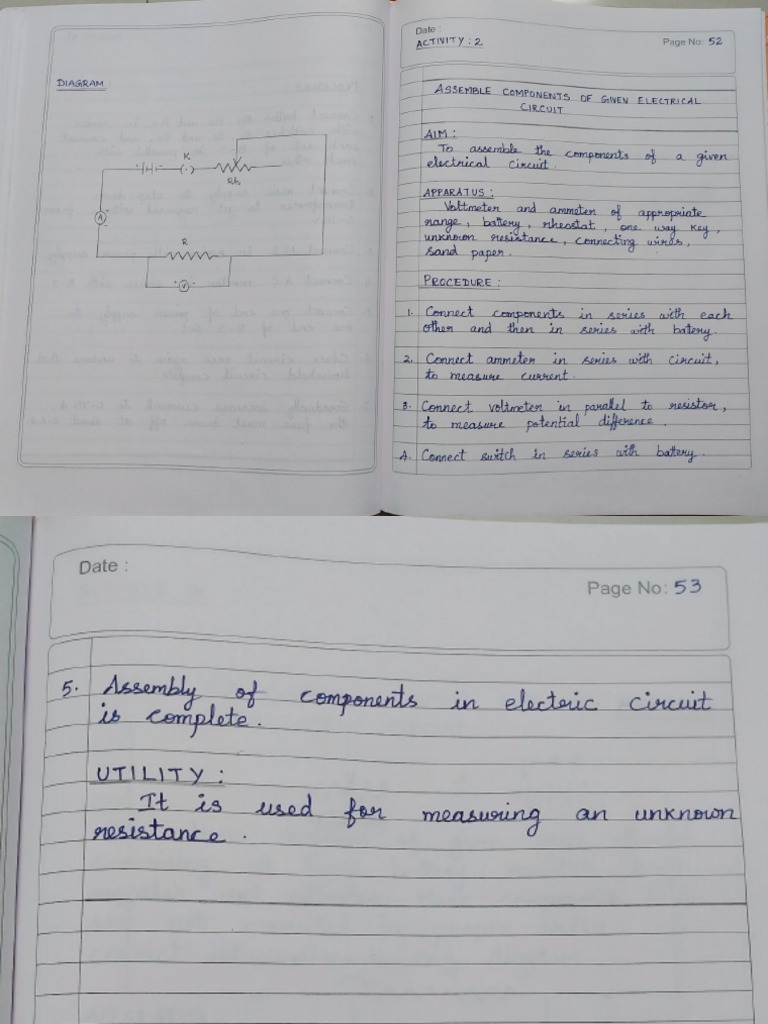 DIAGRAM
K
Rh
A
R
V
Date :
ACTIVITY : 2
Page No: 52
ASSEMBLE COMPONENTS OF GIVEN ELECTRICAL
CIRCUIT
AIM :
To assemble the components of a given
electrical circuit.
APPARATUS :
Voltmeter and ammeter of appropriate
range, battery, rheostat, one way key,
unknown resistance, connecting wires,
sand paper.
PROCEDURE :
1. Connect components in series with each
other and then in series with batery.
2. Connect ammeter in series with circuit,
to measure current.
3. Connect voltmeter in parallel to resistor,
to measure potential difference.
4. Connect switch in series with battery.
Date :
Page No: 53
5. Assembly of components in electric circuit
is complete.
UTILITY :
It is used for measuring an unknown
resistance.